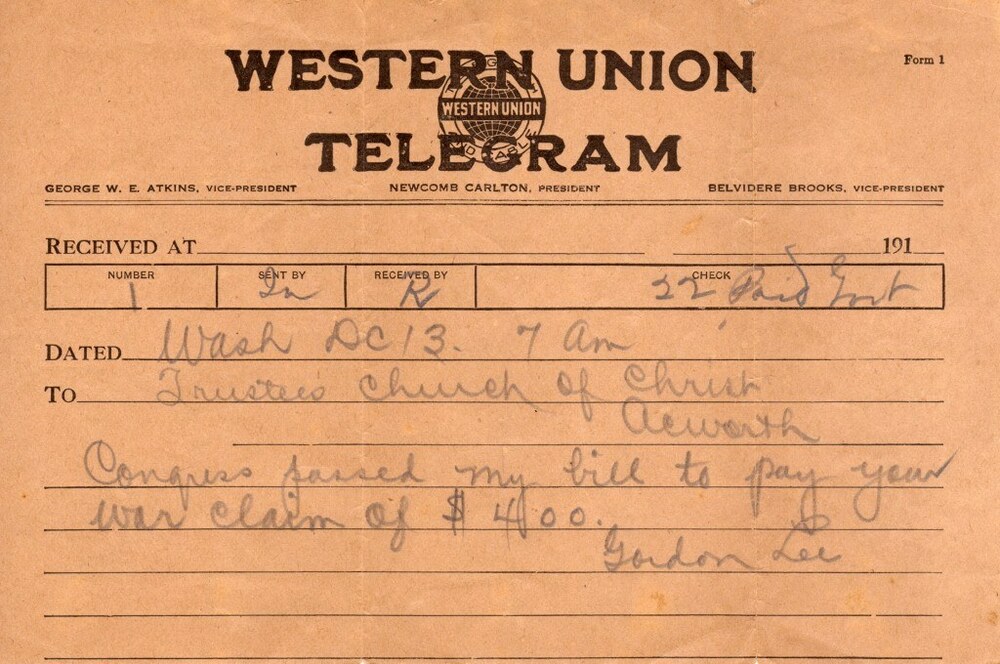 WESTERN UNION
Form 1
WESTERN UNION
TELEGRAM
GEORGE W. E. ATKINS, VICE-PRESIDENT NEWCOMB CARLTON, PRESIDENT BELVIDERE BROOKS, VICE-PRESIDENT
RECEIVED AT 191
NUMBER SENT BY RECEIVED BY CHECK
1 R 22 Paid Govt
DATED Wash DC 13. 7 am
TO Trustees Church of Christ
Acworth
Congress passed my bill to pay your
war claim of $400.
Gordon Lee